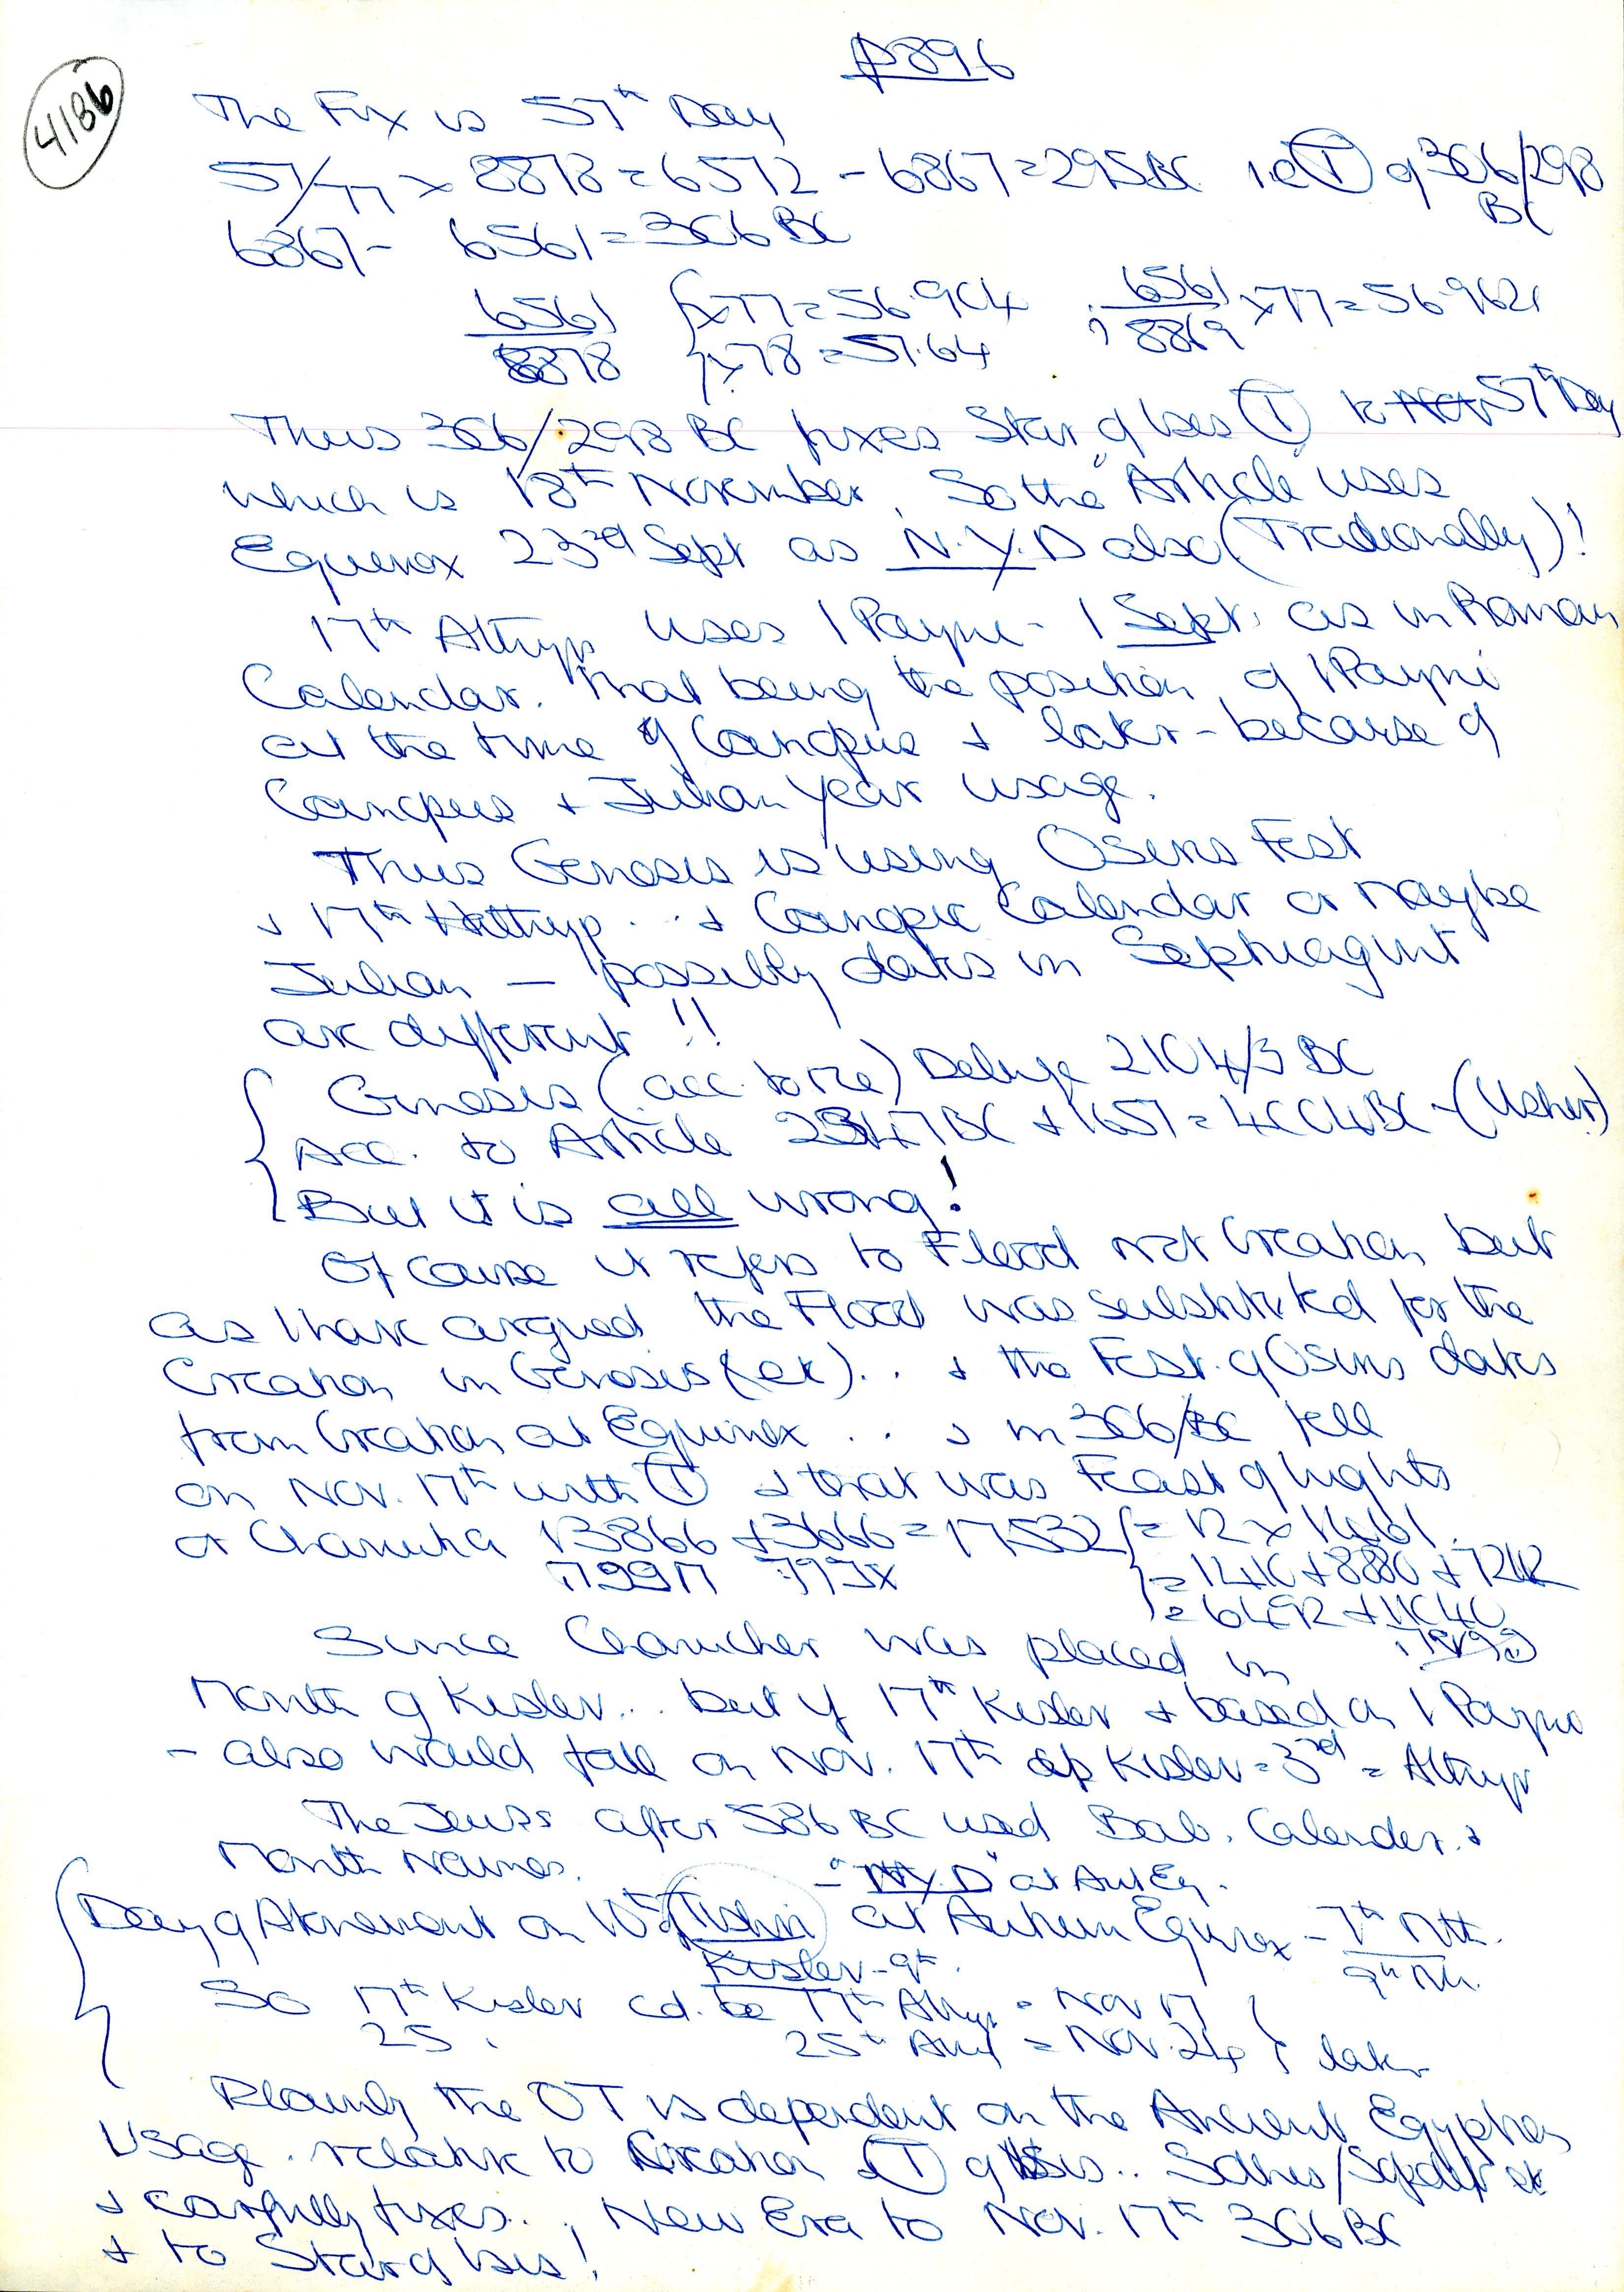 p896
4186
The Fix is 57th Day
57/77 x 8878 = 6572 - 6867 = 295BC i.e. (T) of 306/298 BC
6867 - 6561 = 306 BC
6561/8878 { x77 = 56.904 6561/8869 x 77 = 56.962
x78 = 57.64
Thus 306/298 BC fixes Star of Isis (T) to 57th Day
which is 18th November. So the "Article" uses
Equinox 23rd Sept as N.Y.D also (Tradionally)!
17th Athyr uses 1 Payni - 1 Sept. as in Roman
Calendar. That being the position of 1 Payni
at the time of Canopus & later - because of
Canopus & Julian Year usage.
Thus Genesis is using Osiris Fest
& 17th Hathyr .. & Canopic Calendar or maybe
Julian - possibly dates in Septuagint
are different !!
Genesis (acc. to me) Deluge 2104/3 BC
Acc. to Article 2347 BC + 1657 = 4004BC - (Usher)
But it is all wrong!
Of course it refers to Flood not Creation but
as I have argued the Flood was substituted for the
Creation in Genesis (etc) .. & the Fest. of Osiris dates
from Creation at Equinox .. & in 306/BC fell
on Nov. 17th with (T) & that was Feast of Lights
or Chanuka 13866 + 3666 = 17532 { = 12 x 1461
= 1410 + 8880 + 7242
= 6492 + 11040
Since Chanucher was placed in
Month of Kislev ... but if 17th Kislev & based on 1 Payni
- also would fall on Nov. 17th Kislev = 3rd = Athyr
The Jews after 586 BC used Bab. Calender &
Month Names. - "N.Y.D" at Aut Eq.
Day of Atonement on 10th of Tishri at Autumn Equinox - 7th Mth.
Kislev - 9th. 9th Mth.
So 17th Kislev cd. be 17th Athyr = Nov 17
25 " 25th Athyr = Nov. 24 } later
Plainly the OT is dependent on the Ancient Egyptian
Usage relative to Creation & (T) of Isis .. Sothis/
& carefully fixes .. New Era to Nov. 17th 306 BC
& to Star of Isis!